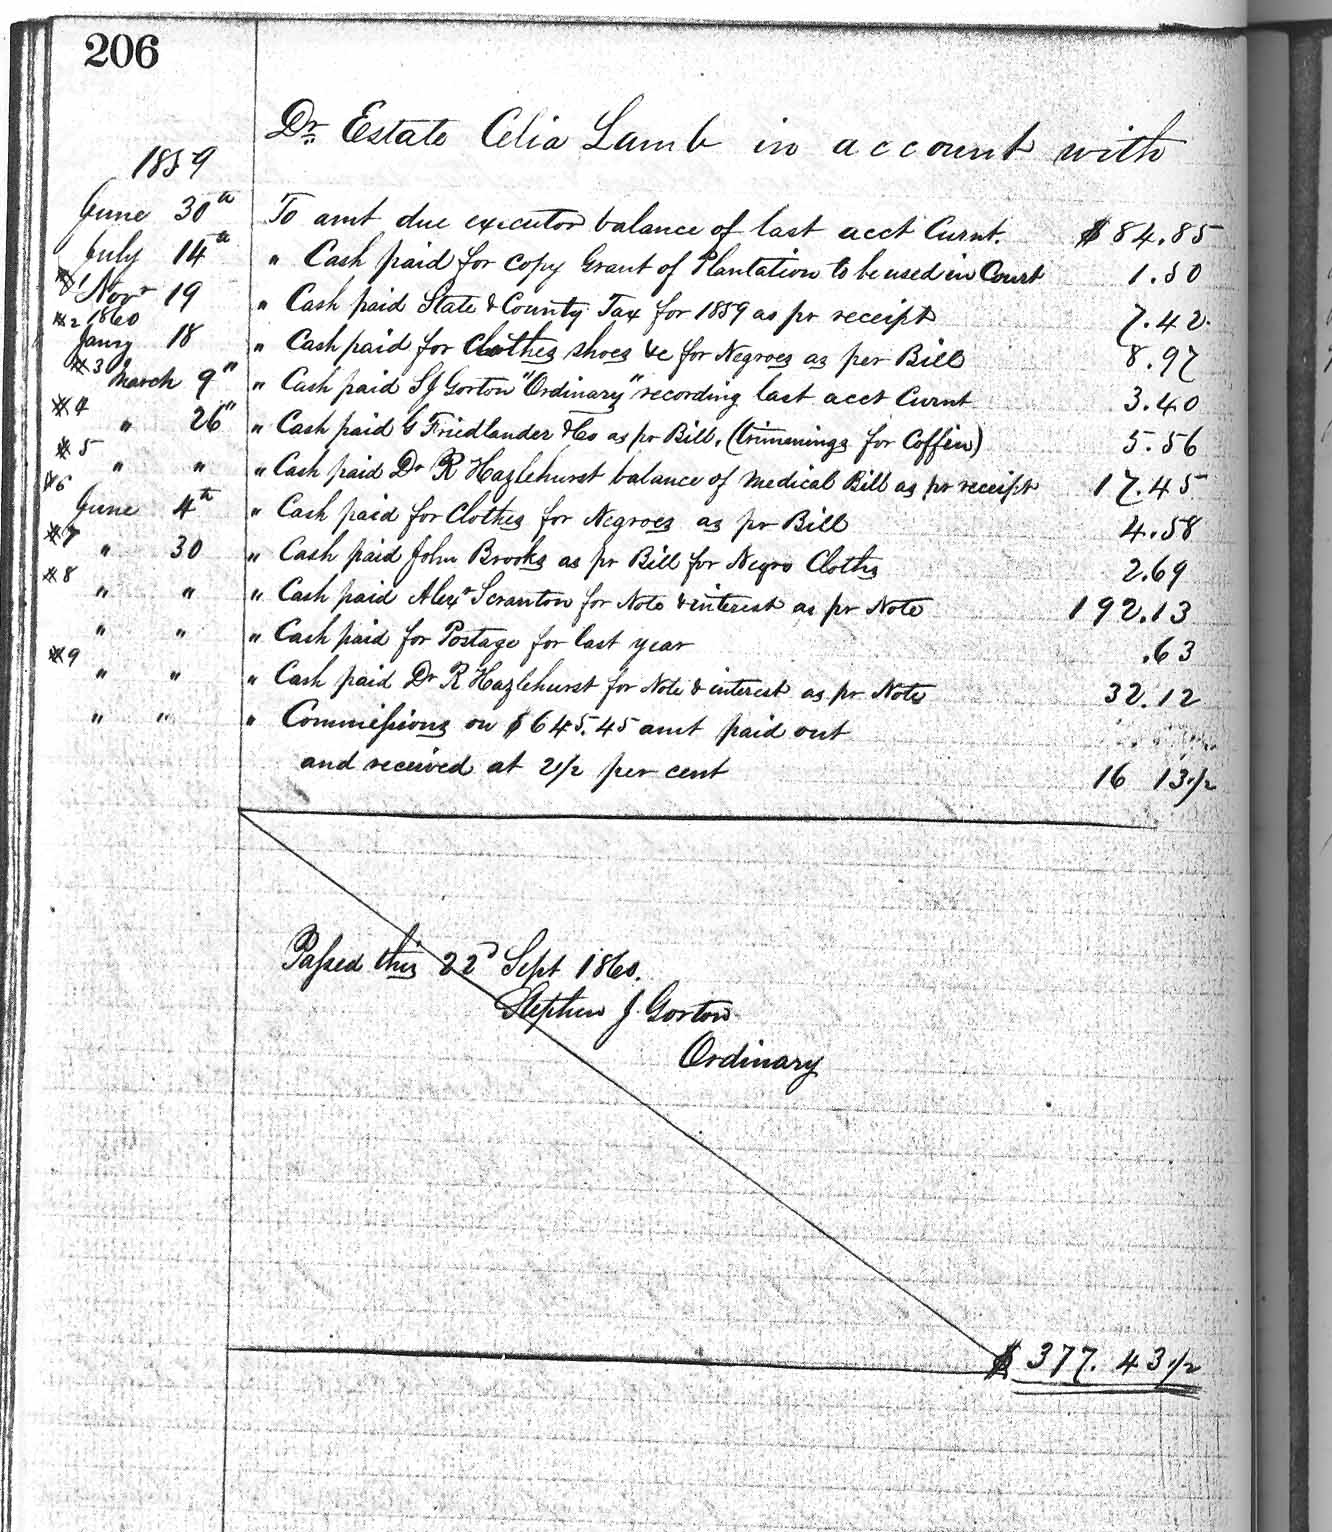 206
Dr Estate Celia Lamb in account with
1859
June 30th To amt due executor balance of last acct Curnt. $84.85
July 14th " Cash paid for copy Grant of Plantation to be used in Court 1.50
#1 Novr 19 " Cash paid State & County Tax for 1859 as pr receipt 7.42
#2 1860
Jany 18 " Cash paid for Clothes shoes &c for Negroes as per Bill 8.97
#3 March 9" " Cash paid S J Gorton "Ordinary" recording last acct Curnt 3.40
#4 " 26" " Cash paid G Friedlander & Co as pr Bill. (trimmings for Coffin) 5.56
#5 " " " Cash paid Dr R Hazlehurst balance of Medical Bill as pr receipt 17.45
#6 June 4th " Cash paid for Clothes for Negroes as pr Bill 4.58
#7 " 30 " Cash paid John Brooks as pr Bill for Negro Cloths 2.69
#8 " " " Cash paid Alexr Scranton for Note & interest as pr Note 192.13
" " " Cash paid for Postage for last year .63
#9 " " " Cash paid Dr R Hazlehurst for Note & interest as pr Note 32.12
" " " Commissions on $645.45 amt paid out
and received at 2 1/2 per cent 16 13 1/2
Passed this 22d Sept 1860.
Stephen J. Gorton
Ordinary
$377.43 1/2